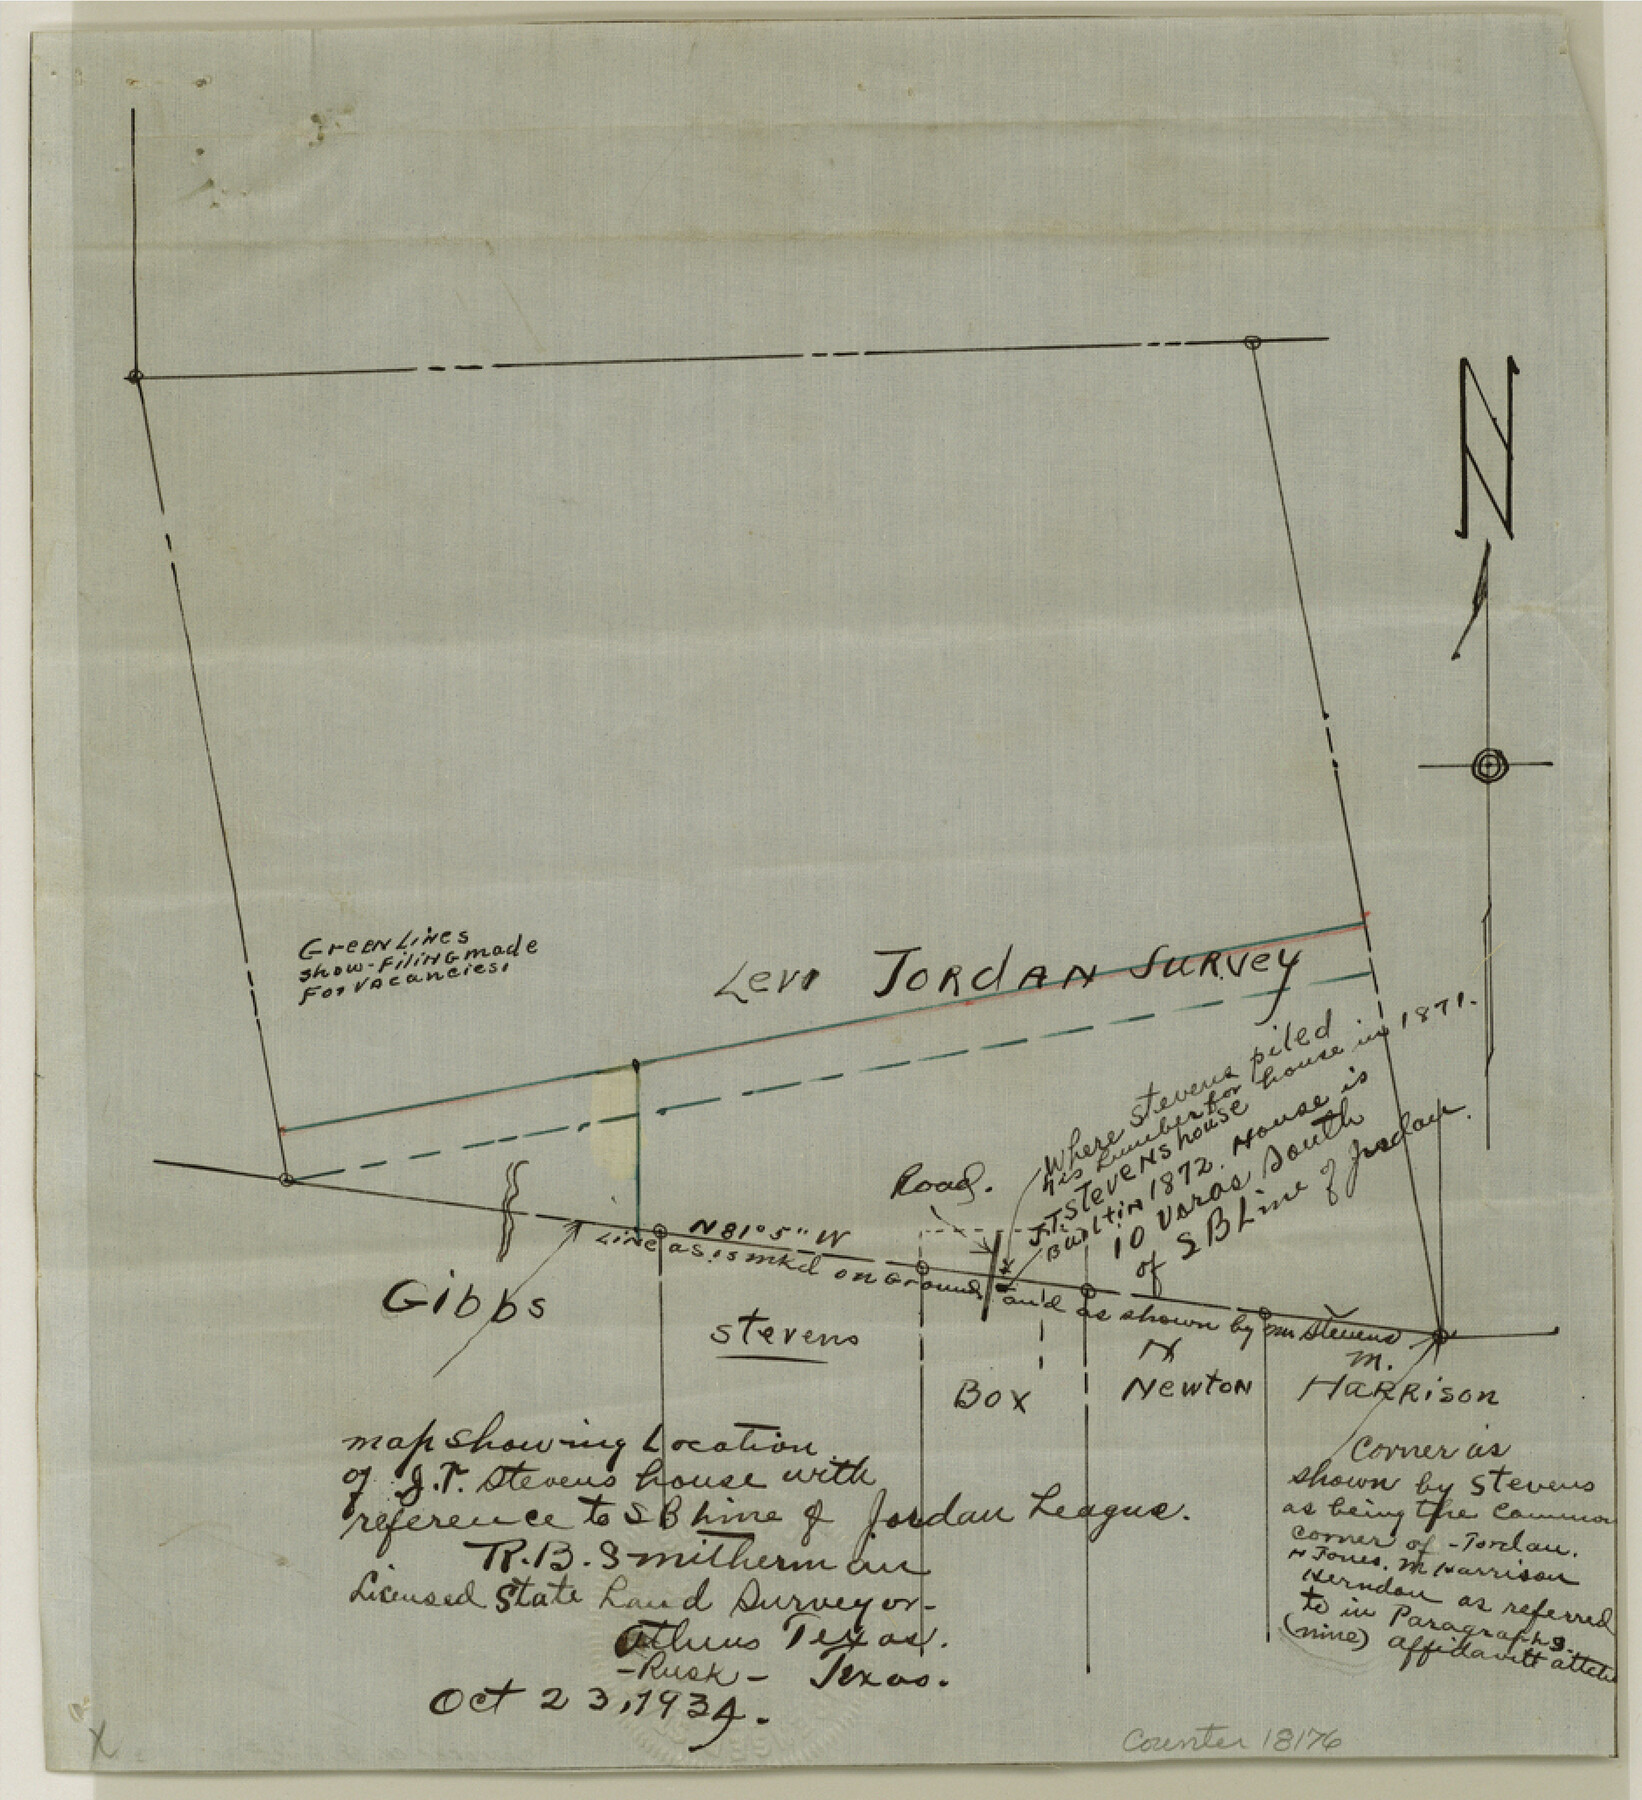 N
Green Lines
show-Filing made
For vacancies.
Levi Jordan Survey
Where Stevens piled
his Lumber for house in 1871.
J.T. Stevens house
Built in 1872. House is
10 Varas South
of SB Line of Jordan.
Road.
N 81° 5" W
Line as is mkd on Ground and as shown by Mr Stevens
Gibbs
Stevens
Box
N
Newton
M.
Harrison
map showing Location
of J.T. Stevens house with
reference to SB Line of Jordan League.
R.B. Smitherman
Licensed State Land Surveyor-
Athens Texas.
-Rusk- Texas.
Oct 23, 1934.
Corner as
shown by Stevens
as being the Common
corner of -Jordan.
N Jones. M Harrison
Herndon as referred
to in Paragraph 9.
(nine) affidavitt
Counter 18176
X